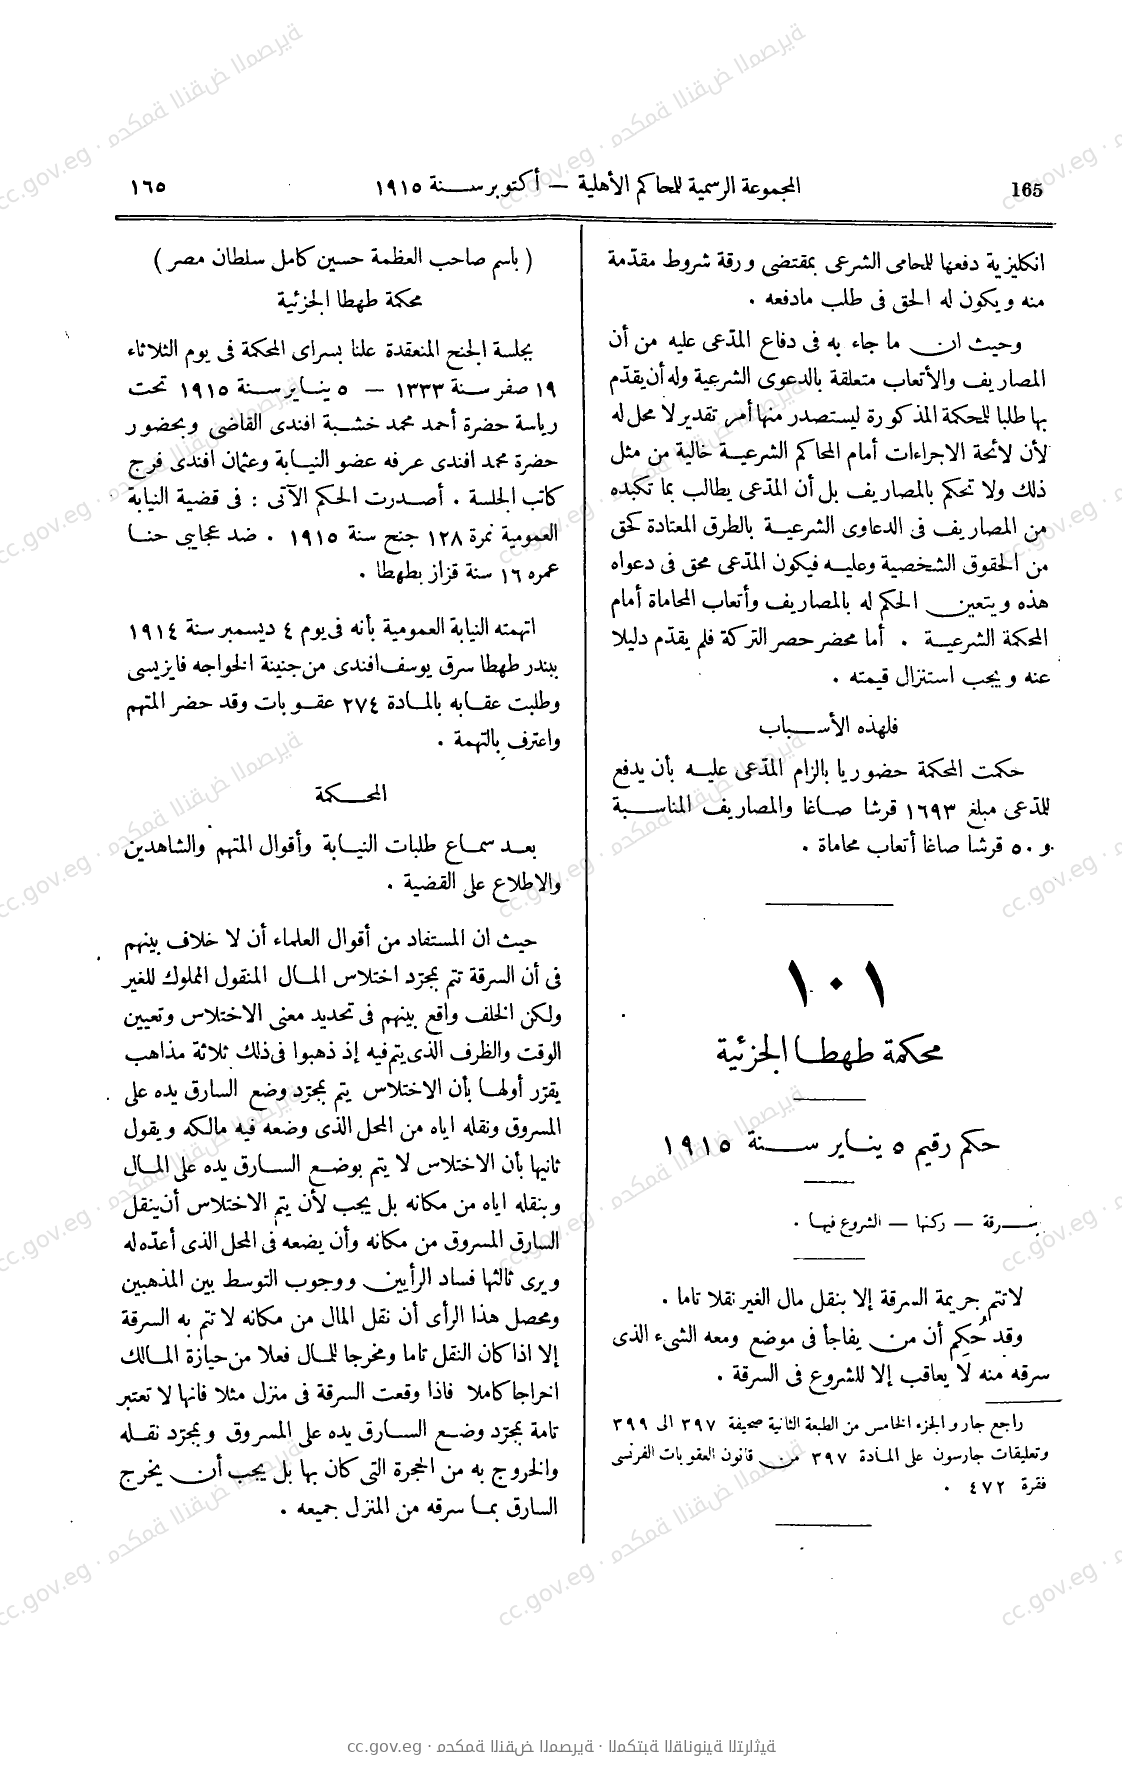 165
المجموعة الرسمية للمحاكم الأهلية — أكتوبر سنة ١٩١٥
١٦٥
انكليزية دفعها للمحامى الشرعى بمقتضى ورقة شروط مقدّمة
منه ويكون له الحق فى طلب مادفعه .
وحيث ان ما جاء به فى دفاع المدّعى عليه من أن
المصاريف والأتعاب متعلقة بالدعوى الشرعية وله أن يقدّم
بها طلبا للمحكمة المذكورة ليستصدر منها أمر تقدير لا محل له
لأن لائحة الاجراءات أمام المحاكم الشرعية خالية من مثل
ذلك ولا تحكم بالمصاريف بل أن المدّعى يطالب بما تكبده
من المصاريف فى الدعاوى الشرعية بالطرق المعتادة كحق
من الحقوق الشخصية وعليه فيكون المدّعى محق فى دعواه
هذه ويتعين الحكم له بالمصاريف وأتعاب المحاماة أمام
المحكمة الشرعية . أما محضر حصر التركة فلم يقدّم دليلا
عنه ويجب استنزال قيمته .
فلهذه الأسباب
حكمت المحكمة حضوريا بالزام المدّعى عليه بأن يدفع
للمدّعى مبلغ ١٦٩٣ قرشا صاغا والمصاريف المناسبة
و ٥٠ قرشا صاغا أتعاب محاماة .
١٠١
محكمة طهطا الجزئية
حكم رقيم ٥ يناير سنة ١٩١٥
سرقة — ركنها — الشروع فيها .
لاتتم جريمة السرقة إلا بنقل مال الغير نقلا تاما .
وقد حُكم أن من يفاجأ فى موضع ومعه الشىء الذى
سرقه منه لا يعاقب إلا للشروع فى السرقة .
راجع جارو الجزء الخامس من الطبعة الثانية صحيفة ٣٩٧ الى ٣٩٩
وتعليقات جارسون على المادة ٣٩٧ من قانون العقوبات الفرنسى
فقرة ٤٧٢ .
( باسم صاحب العظمة حسين كامل سلطان مصر )
محكمة طهطا الجزئية
بجلسة الجنح المنعقدة علنا بسراى المحكمة فى يوم الثلاثاء
١٩ صفر سنة ١٣٣٣ — ٥ يناير سنة ١٩١٥ تحت
رياسة حضرة أحمد محمد خشبة افندى القاضى وبحضور
حضرة محمد افندى عرفه عضو النيابة وعثمان افندى فرج
كاتب الجلسة . أصدرت الحكم الآتى : فى قضية النيابة
العمومية نمرة ١٢٨ جنح سنة ١٩١٥ . ضد عجايبى حنا
عمره ١٦ سنة قزاز بطهطا .
اتهمته النيابة العمومية بأنه فى يوم ٤ ديسمبر سنة ١٩١٤
ببندر طهطا سرق يوسف افندى من جنينة الخواجه فايز يسى
وطلبت عقابه بالمادة ٢٧٤ عقوبات وقد حضر المتهم
واعترف بالتهمة .
المحكمة
بعد سماع طلبات النيابة وأقوال المتهم والشاهدين
والاطلاع على القضية .
حيث ان المستفاد من أقوال العلماء أن لا خلاف بينهم
فى أن السرقة تتم بمجرّد اختلاس المال المنقول المملوك للغير
ولكن الخلف واقع بينهم فى تحديد معنى الاختلاس وتعيين
الوقت والظرف الذى يتم فيه إذ ذهبوا فى ذلك ثلاثة مذاهب
يقرّر أولها بأن الاختلاس يتم بمجرّد وضع السارق يده على
المسروق ونقله اياه من المحل الذى وضعه فيه مالكه ويقول
ثانيها بأن الاختلاس لا يتم بوضع السارق يده على المال
وبنقله اياه من مكانه بل يجب لأن يتم الاختلاس أن ينقل
السارق المسروق من مكانه وأن يضعه فى المحل الذى أعدّه له
ويرى ثالثها فساد الرأيين ووجوب التوسط بين المذهبين
ومحصل هذا الرأى أن نقل المال من مكانه لا تتم به السرقة
إلا اذا كان النقل تاما ومخرجا للمال فعلا من حيازة المالك
اخراجا كاملا فاذا وقعت السرقة فى منزل مثلا فانها لا تعتبر
تامة بمجرّد وضع السارق يده على المسروق وبمجرّد نقله
والخروج به من الحجرة التى كان بها بل يجب أن يخرج
السارق بما سرقه من المنزل جميعه .
cc.gov.eg · محكمة النقض المصرية · المكتبة القانونية التراثية